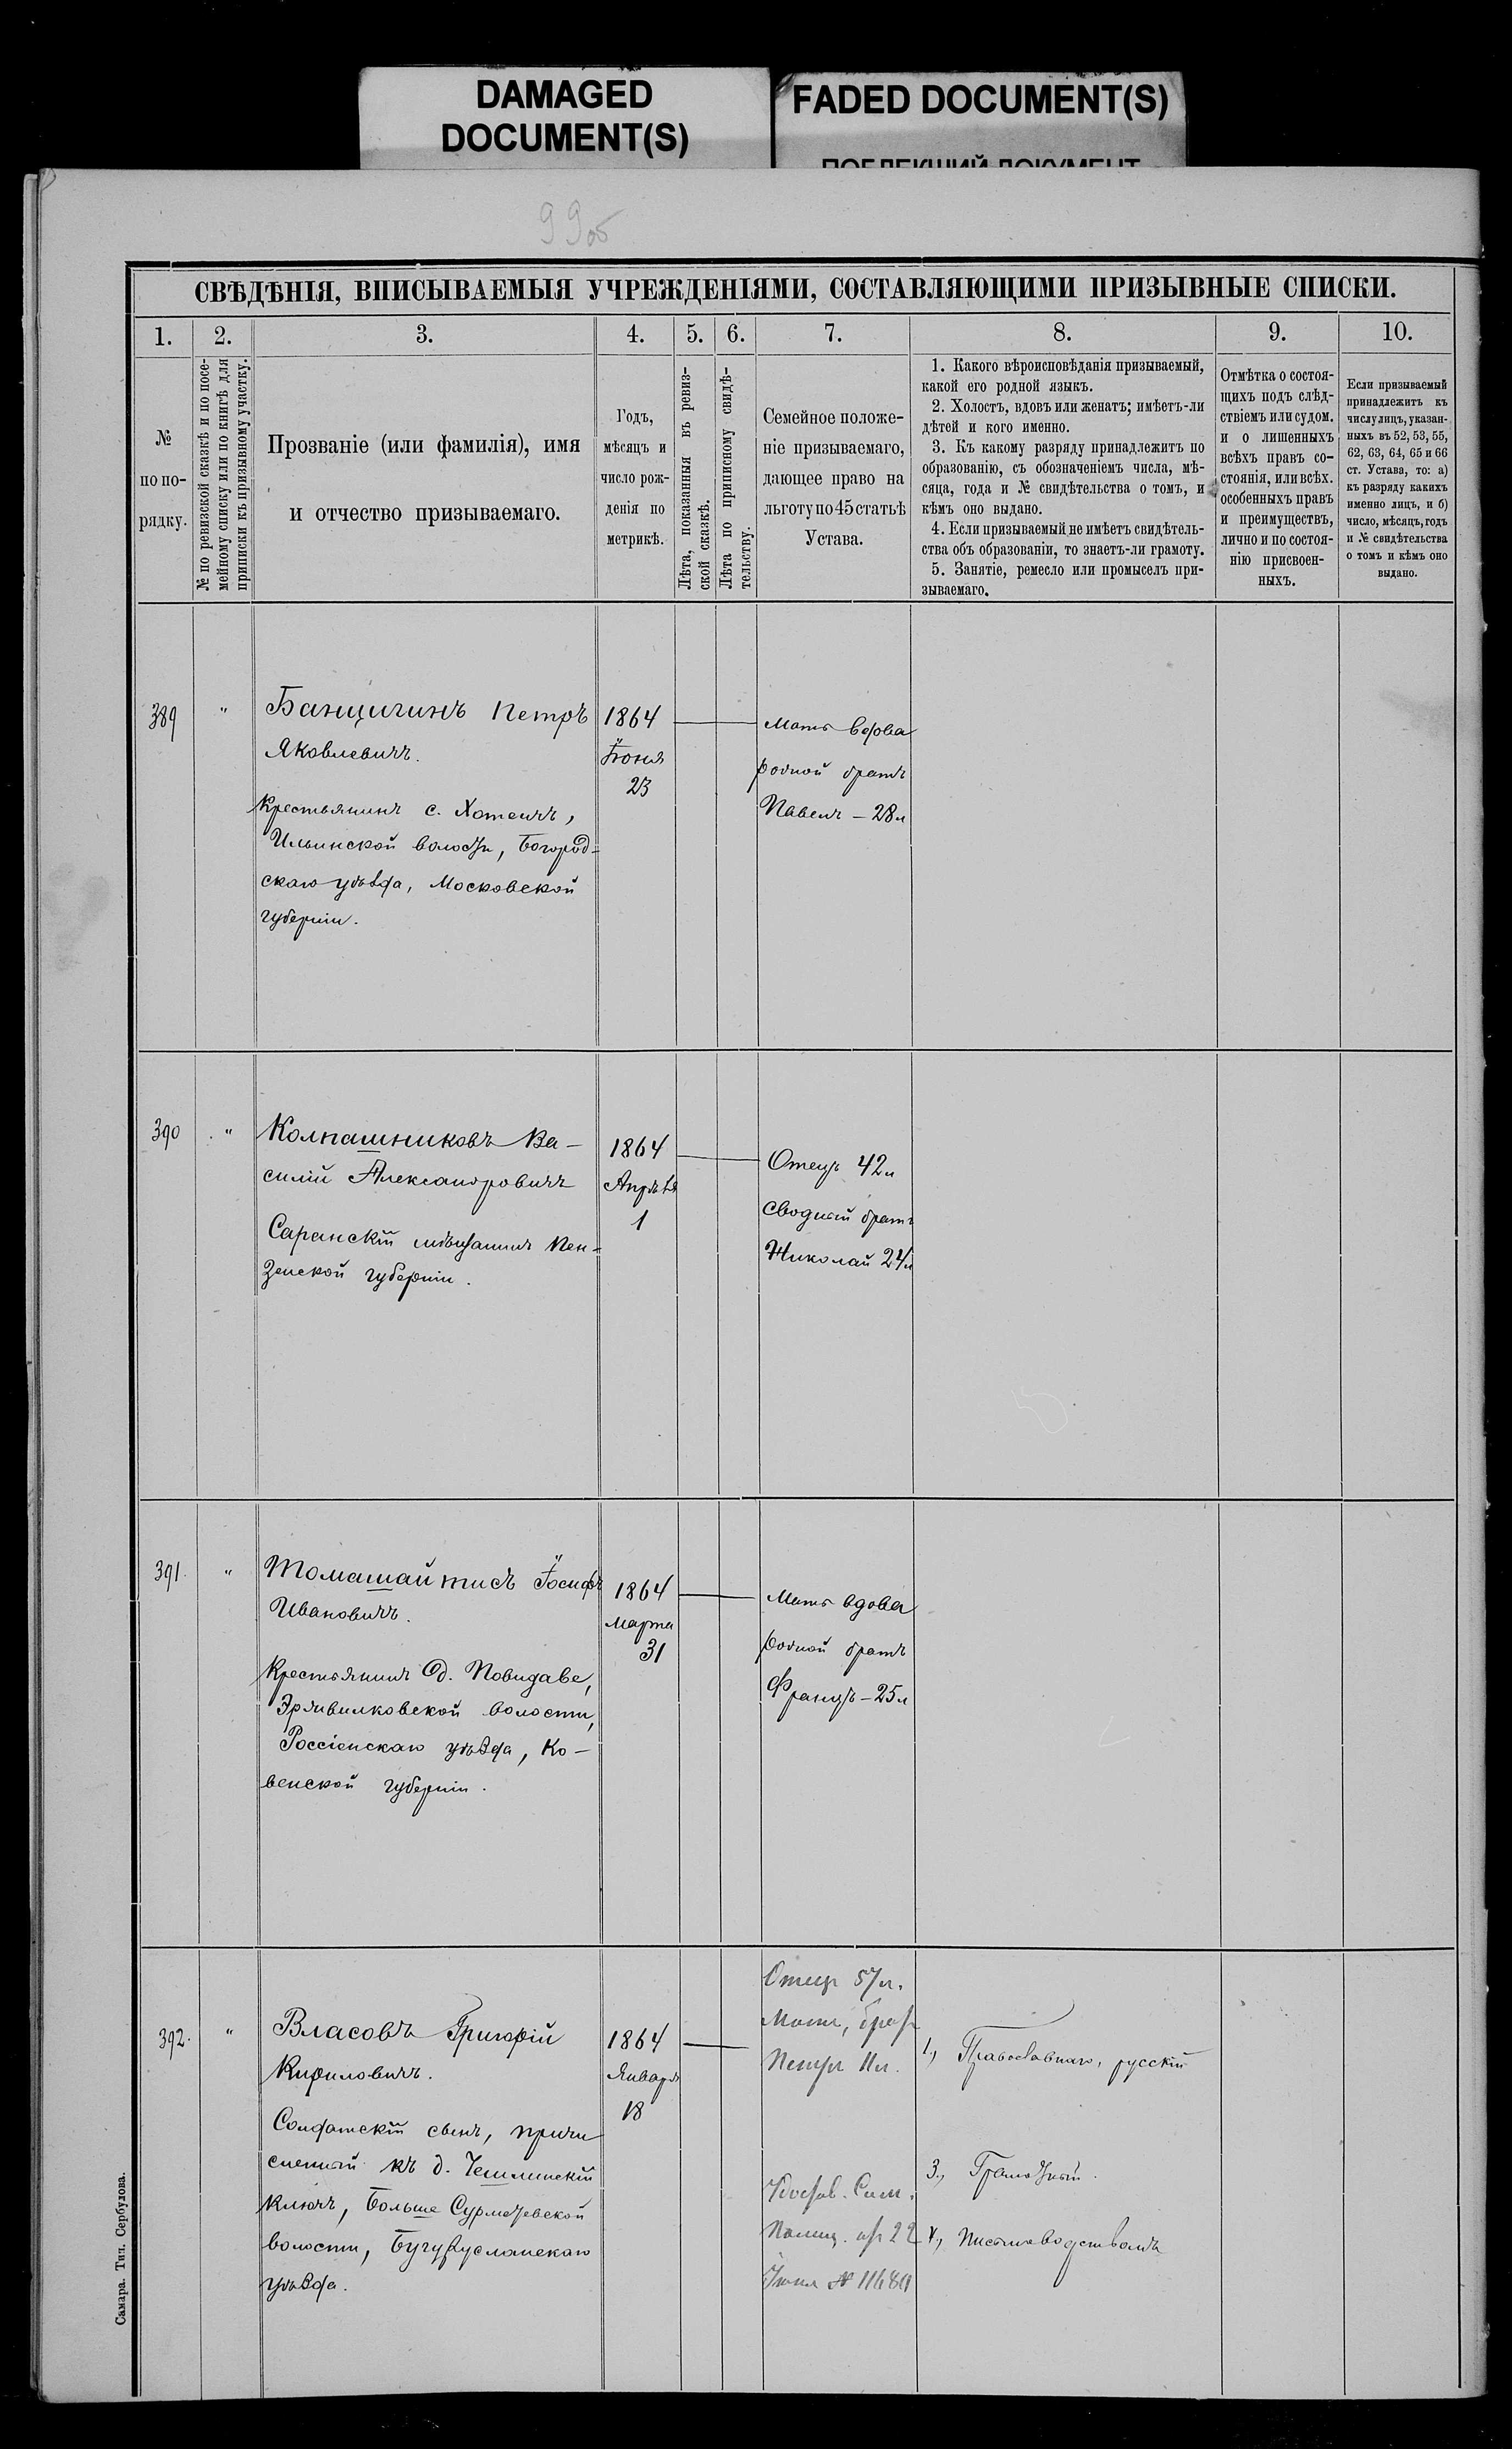 DAMAGED
DOCUMENT(S)
FADED DOCUMENT(S)
ПОБЛЕКШИЙ ДОКУМЕНТ
99об
СВѢДѢНІЯ, ВПИСЫВАЕМЫЯ УЧРЕЖДЕНІЯМИ, СОСТАВЛЯЮЩИМИ ПРИЗЫВНЫЕ СПИСКИ.
1. 2. 3. 4. 5. 6. 7. 8. 9. 10.
№
по по-
рядку.
№ по ревизской сказкѣ и по посе-
мейному списку или по книгѣ для
приписки къ призывному участку.
Прозваніе (или фамилія), имя
и отчество призываемаго.
Годъ,
мѣсяцъ и
число рож-
денія по
метрикѣ.
Лѣта, показанныя въ ревиз-
ской сказкѣ.
Лѣта по приписному свидѣ-
тельству.
Семейное положе-
ніе призываемаго,
дающее право на
льготу по 45 статьѣ
Устава.
1. Какого вѣроисповѣданія призываемый,
какой его родной языкъ.
2. Холостъ, вдовъ или женатъ; имѣетъ-ли
дѣтей и кого именно.
3. Къ какому разряду принадлежитъ по
образованію, съ обозначеніемъ числа, мѣ-
сяца, года и № свидѣтельства о томъ, и
кѣмъ оно выдано.
4. Если призываемый не имѣетъ свидѣтель-
ства объ образованіи, то знаетъ-ли грамоту.
5. Занятіе, ремесло или промыселъ при-
зываемаго.
Отмѣтка о состоя-
щихъ подъ слѣд-
ствіемъ или судом.
и о лишенныхъ
всѣхъ правъ со-
стоянія, или всѣх.
особенныхъ правъ
и преимуществъ,
лично и по состоя-
нію присвоен-
ныхъ.
Если призываемый
принадлежитъ къ
числу лицъ, указан-
ныхъ въ 52, 53, 55,
62, 63, 64, 65 и 66
ст. Устава, то: а)
къ разряду какихъ
именно лицъ, и б)
число, мѣсяцъ, годъ
и № свидѣтельства
о томъ и кѣмъ оно
выдано.
389 "
Банщигинъ Петръ
Яковлевичъ.
Крестьянинъ с. Хотеичъ,
Ильинской волости, Богород-
скаго уѣзда, Московской
губерніи.
1864
Іюня
23
Мать вдова
родной братъ
Павелъ – 28 л
390 "
Колпашниковъ Ва-
силій Александровичъ
Саранскій мѣщанинъ Пен-
зенской губерніи.
1864
Апрѣля
1
Отецъ 42 л
сводный братъ
Николай 24 л
391. "
Томашайтисъ Іосифъ
Ивановичъ.
Крестьянинъ д. Повидаве,
Эржвилковской волости,
Россіенскаго уѣзда, Ко-
венской губерніи.
1864
Марта
31
Мать вдова
родной братъ
Францъ – 25 л
392. "
Власовъ Григорій
Кириловичъ.
Солдатскій сынъ, причи
сленный къ д. Чешлинскій
Ключъ, Больше Сурметевской
волости, Бугурусланскаго
уѣзда.
1864
Января
18
Отецъ 57 л.
Мать, братъ
Петръ 11 л.
Удостов. Сам.
Полиц. отъ 22
Іюня № 11680
1., Православнаго, русскій
3., Грамотный.
4., Письмоводствомъ
Самара. Тип. Сербулова.